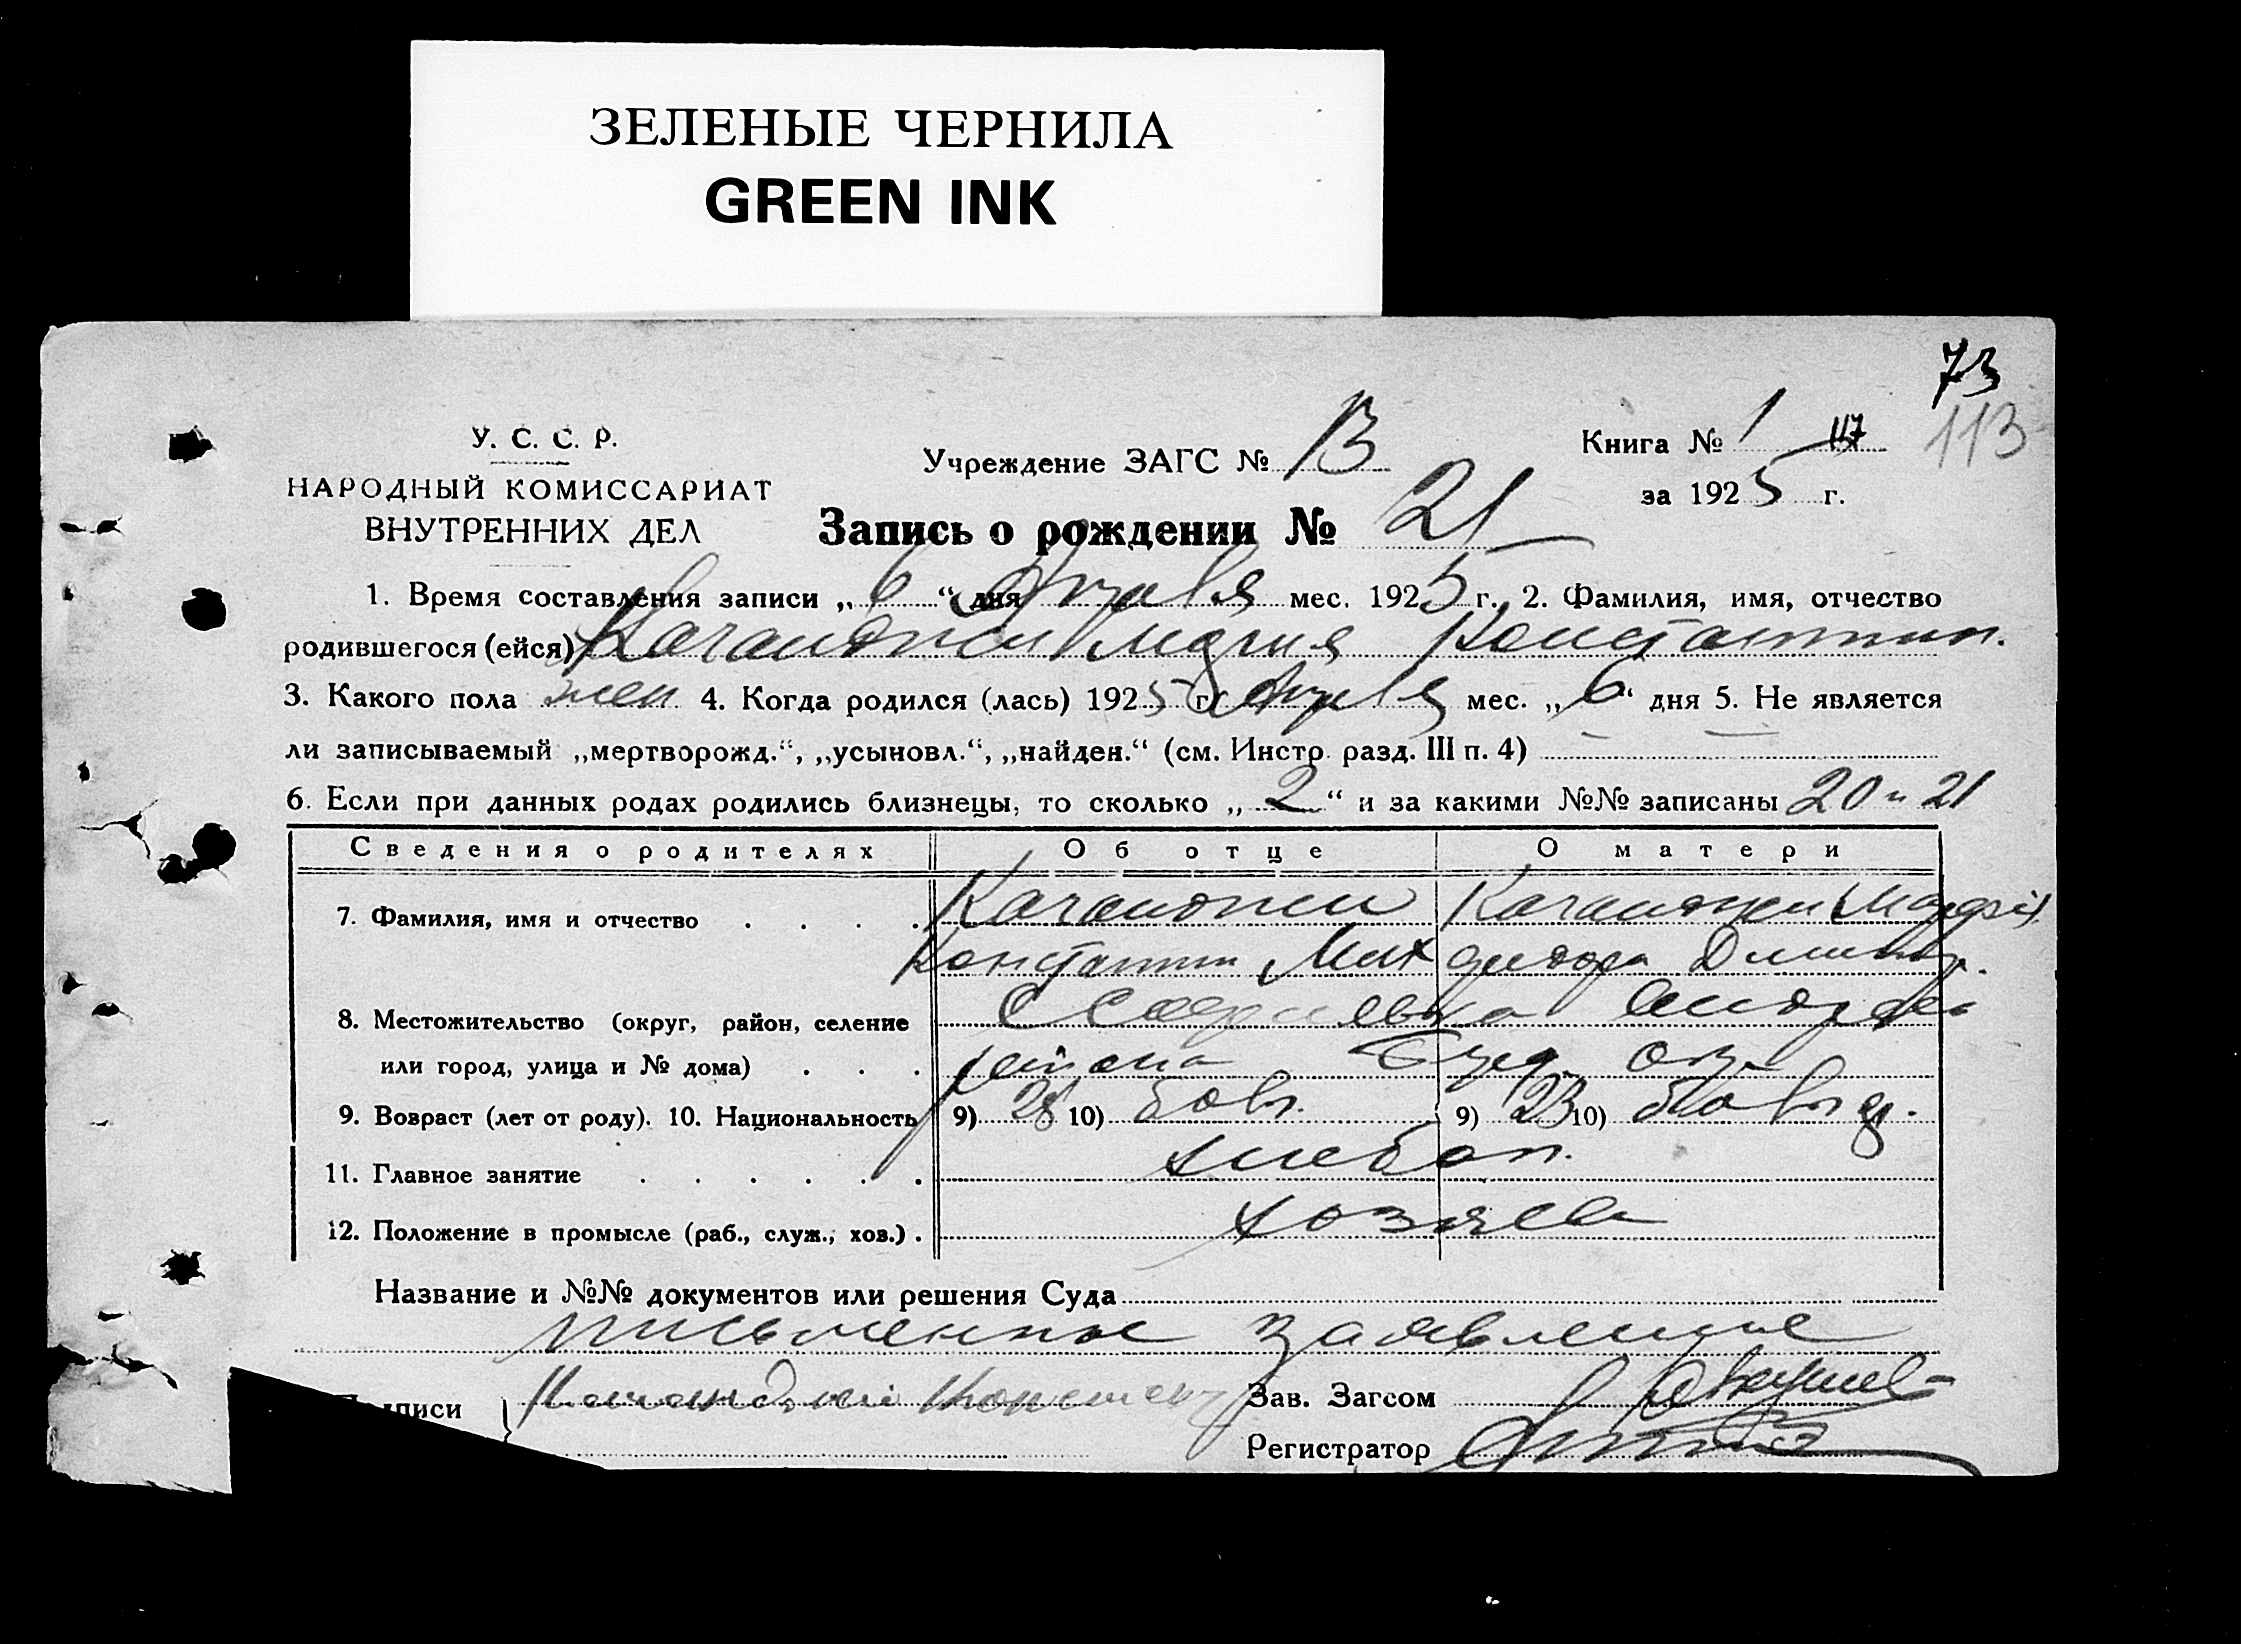 ЗЕЛЕНЫЕ ЧЕРНИЛА
GREEN INK
73
113
У. С. С. Р.
НАРОДНЫЙ КОМИССАРИАТ
ВНУТРЕННИХ ДЕЛ
Учреждение ЗАГС № 13
Книга № 1 117
за 1925 г.
Запись о рождении № 21
1. Время составления записи „6“ дня Апреля мес. 1925 г. 2. Фамилия, имя, отчество
родившегося (ейся) Мария Константин.
3. Какого пола жен 4. Когда родился (лась) 1925 г. Апреля мес. „6“ дня 5. Не является
ли записываемый „мертворожд.“, „усыновл.“, „найден.“ (см. Инстр. разд. III п. 4)
6. Если при данных родах родились близнецы, то сколько „2“ и за какими №№ записаны 20 и 21
Сведения о родителях Об отце О матери
7. Фамилия, имя и отчество
Константин Мих
8. Местожительство (округ, район, селение
или город, улица и № дома) района
9. Возраст (лет от роду). 10. Национальность 9) 28 10) 9) 23 10)
11. Главное занятие хлебоп.
12. Положение в промысле (раб., служ., хоз.) хозяева
Название и №№ документов или решения Суда
письменные заявление
Зав. Загсом
Регистратор